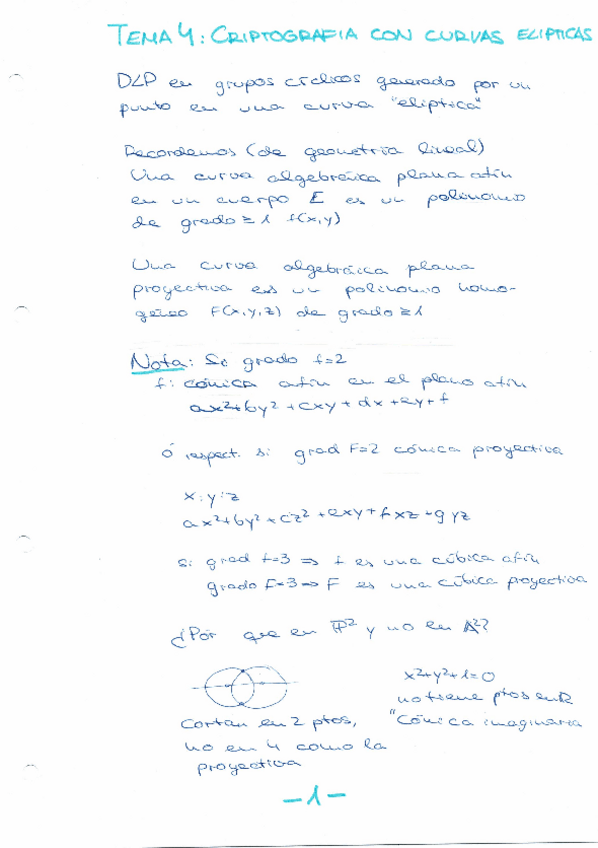 TEMA 4: CRIPTOGRAFIA CON CURVAS ELIPTICAS
DLP en grupos cíclicos generado por un
punto en una curva "eliptica"
Recordemos (de geometria lineal)
Una curva algebraica plana afín
en un cuerpo E es un polinomio
de grado ≥ 1 f(x,y)
Una curva algebráica plana
proyectiva es un polinomio homo-
géneo F(x,y,z) de grado ≥ 1
Nota: Si grado f=2
f: cónica afín en el plano afín
ax²+by²+cxy+dx+ey+f
ó respect. si grad F=2 cónica proyectiva
x:y:z
ax²+by²+cz²+exy+fxz+gyz
si grad f=3 ⇒ f es una cúbica afín
grado F=3 ⇒ F es una cúbica proyectiva
¿Por que en P² y no en A²?
Cortan en 2 ptos,
no en 4 como la
proyectiva
x²+y²+1=0
no tiene ptos en R
"Cónica imaginaria
-1-